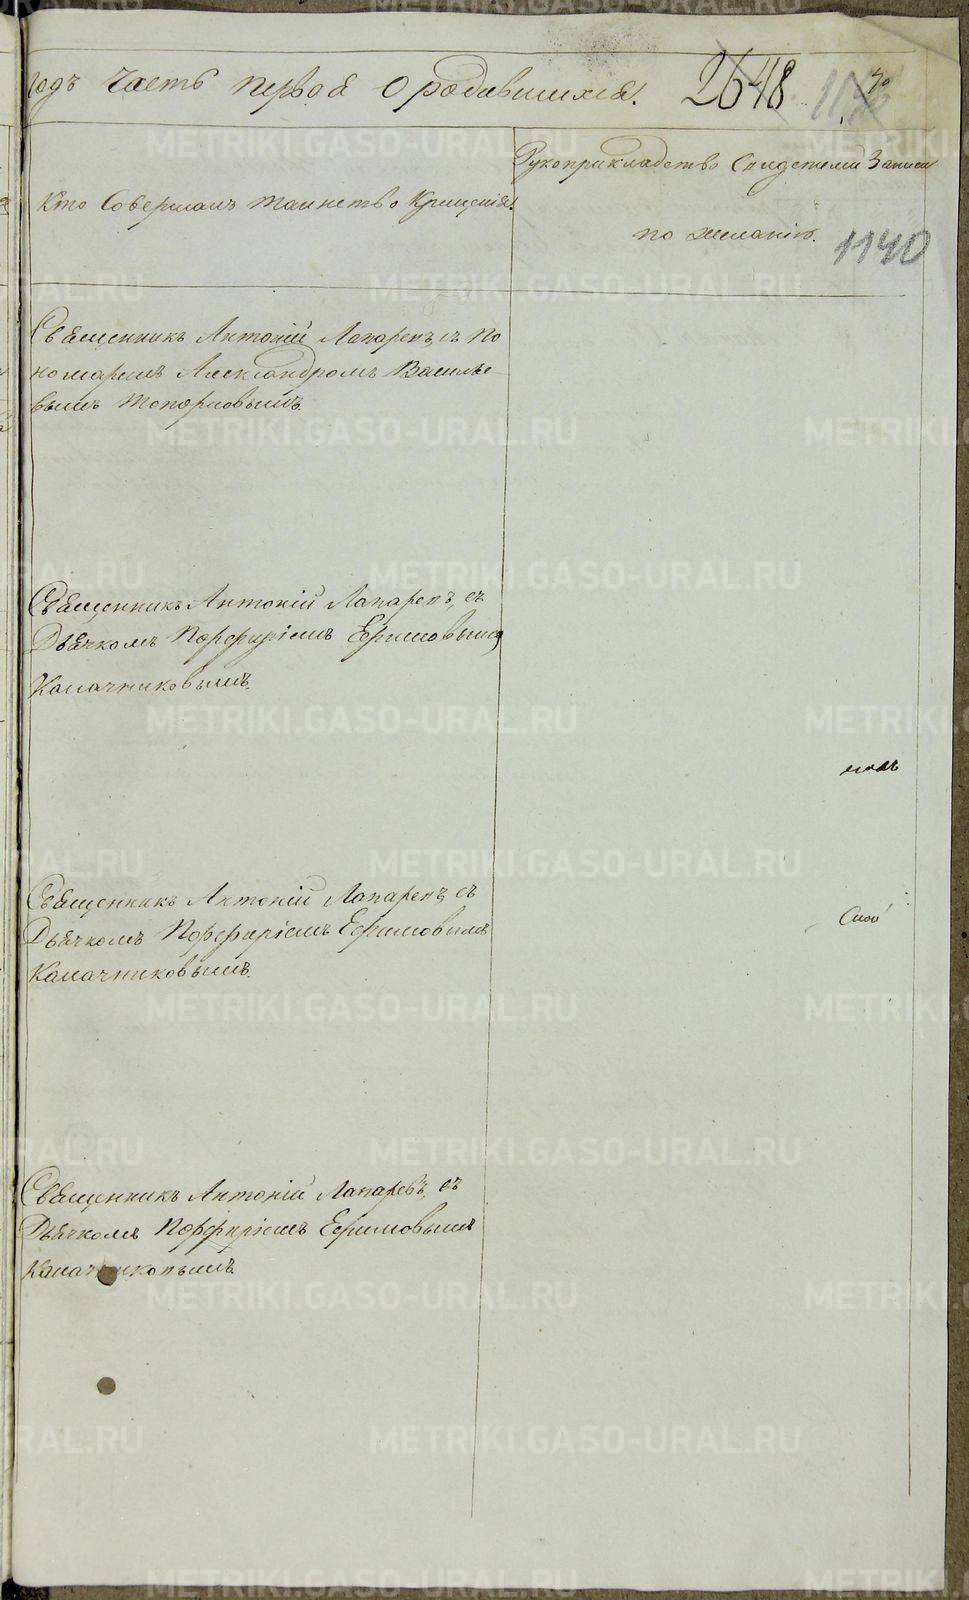 годъ Часть первая О родившихся. 2648
1140
Кто Совершалъ таинство Крещенія.
Рукоприкладство Свидетелей Записи
по желанію.
Священникъ Антоній Лапаревъ, съ По
номаремъ Александромъ Василье
вымъ Топорковымъ.
Священникъ Антоній Лапаревъ, съ
Дьячкомъ Порфиріемъ Ефимовымъ
Калачниковымъ.
Священникъ Антоній Лапаревъ, съ
Дьячкомъ Порфиріемъ Ефимовымъ
Калачниковымъ.
Священникъ Антоній Лапаревъ, съ
Дьячкомъ Порфиріемъ Ефимовымъ
Калачниковымъ.
METRIKI.GASO-URAL.RU